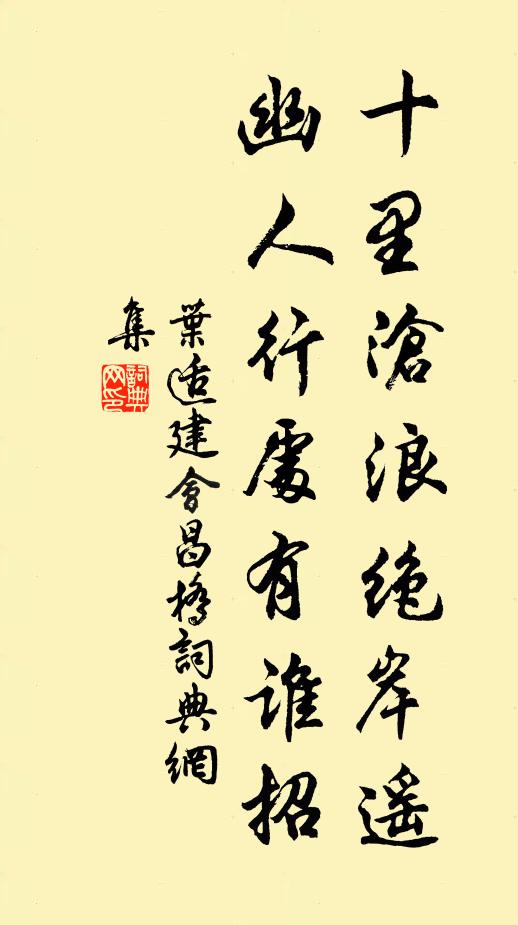 十里滄浪絶岸遥
幽人行處有誰招
葉适建會昌橋詞典網
集
詞典
网印